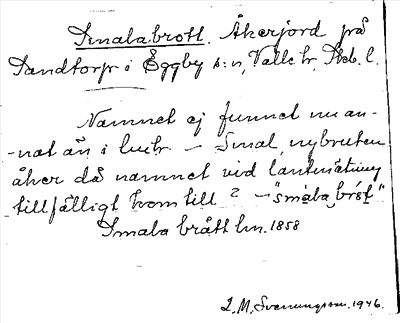 Smalabrott. Åkerjord på
Sandtorp i Eggby s:n, Valle hr, Skab. l.
Namnet ej funnet nu an-
-nat än i lmhr – Smal, nybruten
åker då namnet vid lantmätning
tillfälligt kom till? – "småla bröt"
Smala brått lm. 1858
L. M. Svenungsson. 1946.